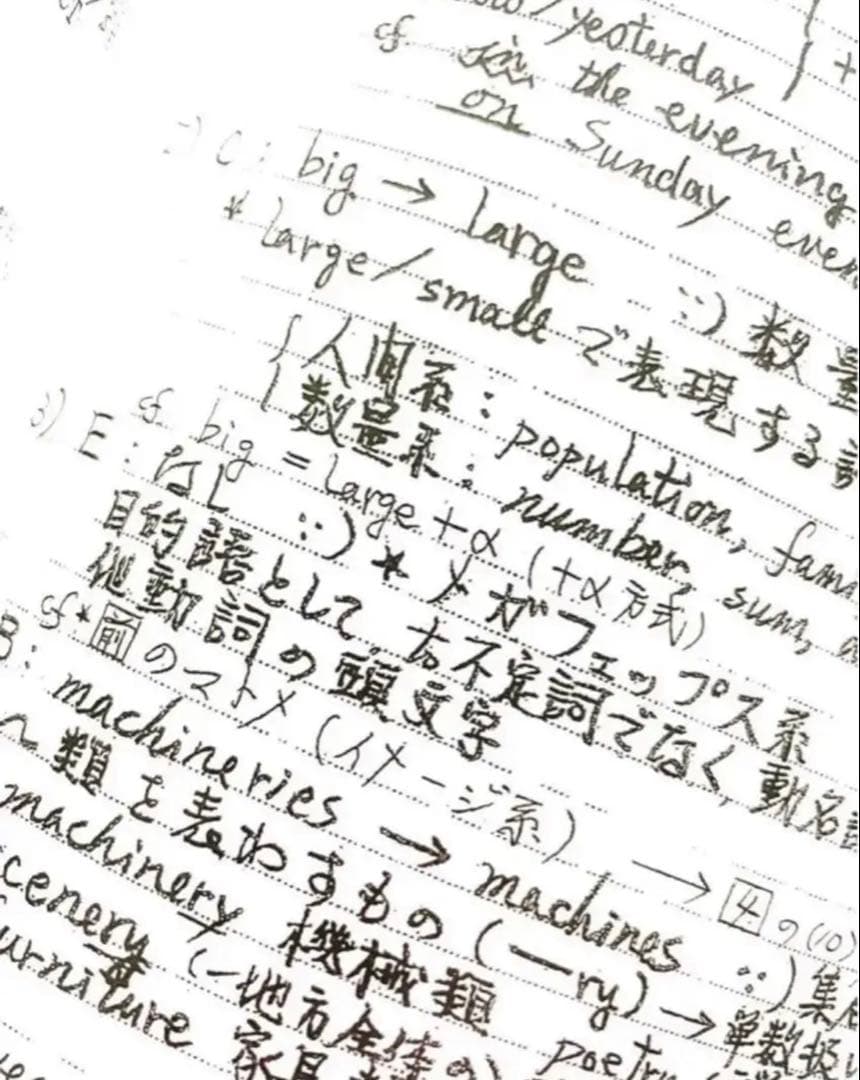 /yesterday } +
cf in the evening
on Sunday even
2) C: big → large ∵) 数量
* large/small で表現する
{ 人間系: population, fam
{ 数量系: number, sum, a
cf big = large + α (+α方式)
3) E: なし ∵) * メがフェップス系
目的語として, to不定詞でなく, 動名
他動詞の頭文字
cf * 前のマトメ (イメージ系) → 4の(10)
B: machineries → machines ∵) 集
~類を表わすもの (—ry) → 単数扱い
machinery 機械類 poetry
cenery (一地方全体の)
urniture 家具